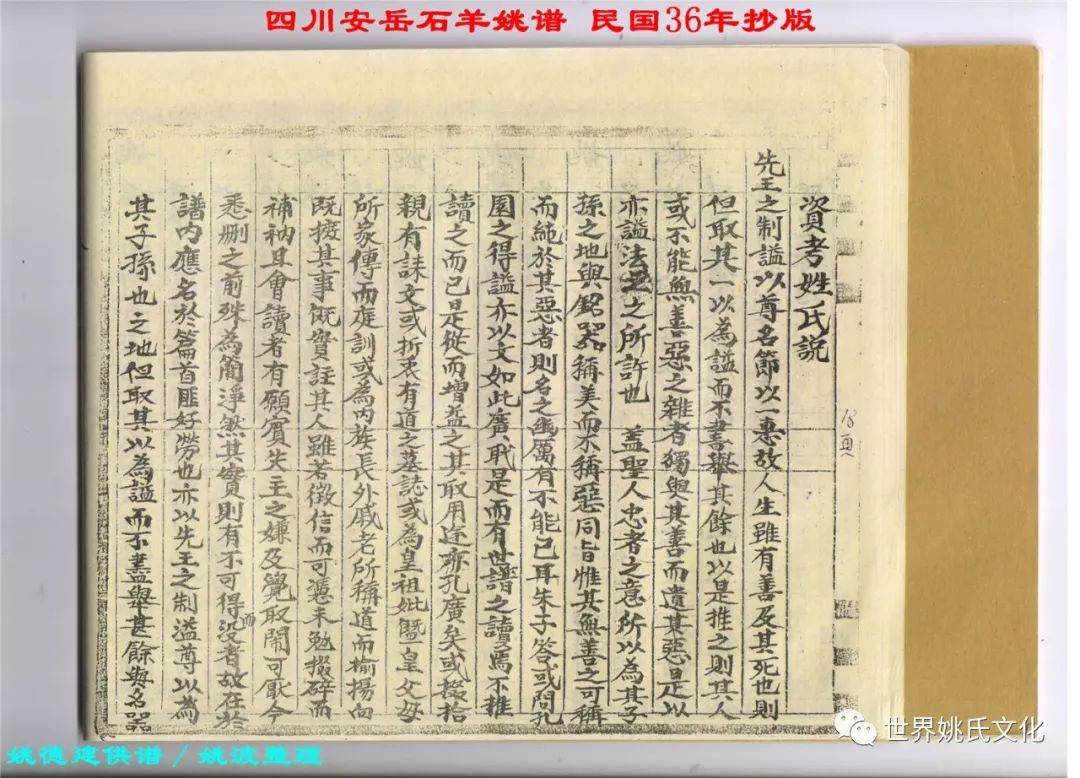 四川安岳石羊姚谱 民国36年抄版
資考姓氏說
先王之制謚以尊名節以一惠故人生雖有善及其死也則
但取其一以為謚而不盡舉其餘也以是推之則其人
或不能無善惡之雜者獨與其善而遺其惡是以
亦謚法之所許也 盖聖人忠者之意所以為其子
孫之地與銘器稱美而不稱惡同旨惟其無善之可稱
而純於其惡者則名之幽厲有不能已耳朱子答或問孔
圉之得謚亦以文如此廣哉是而有世譜之讀焉不推
讀之而已是從而增益之其取用途亦孔廣矣或掇拾
親有誄文或折衷有道之墓誌或為皇祖妣暨皇父母
所家傳而庭訓或為內族長外戚老所稱道而揄揚向
既撥其事旣實註其人雖若徵信而可憑未勉掇碎而
補衲且會讀者有願賓失主之嫌及覺取鬧可厭今
悉删之前殊為簡淨然其實則有不可得没者故在於
譜內應名於篇首匪好勞也亦以先王之制謚尊以為
其子孫也之地但取其以為謚而不盡舉甚餘與名器
18頁
姚德建供谱/姚波整理
世界姚氏文化